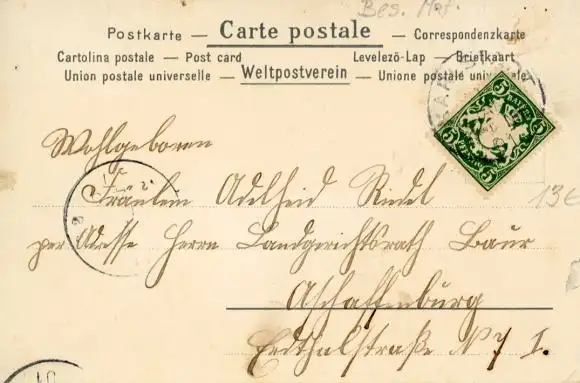 Bes. Mat.
Postkarte — Carte postale — Correspondenzkarte
Cartolina postale — Post card Levelezö-Lap — Briefkaart
Union postale universelle — Weltpostverein — Unione postale universale
5 BAYERN 5
Wohlgeboren
Fräulein Adelheid Riedel
per Adresse Herrn Landgerichtsrath Baur
Aschaffenburg
Erdthalstraße N 7 I.
13€